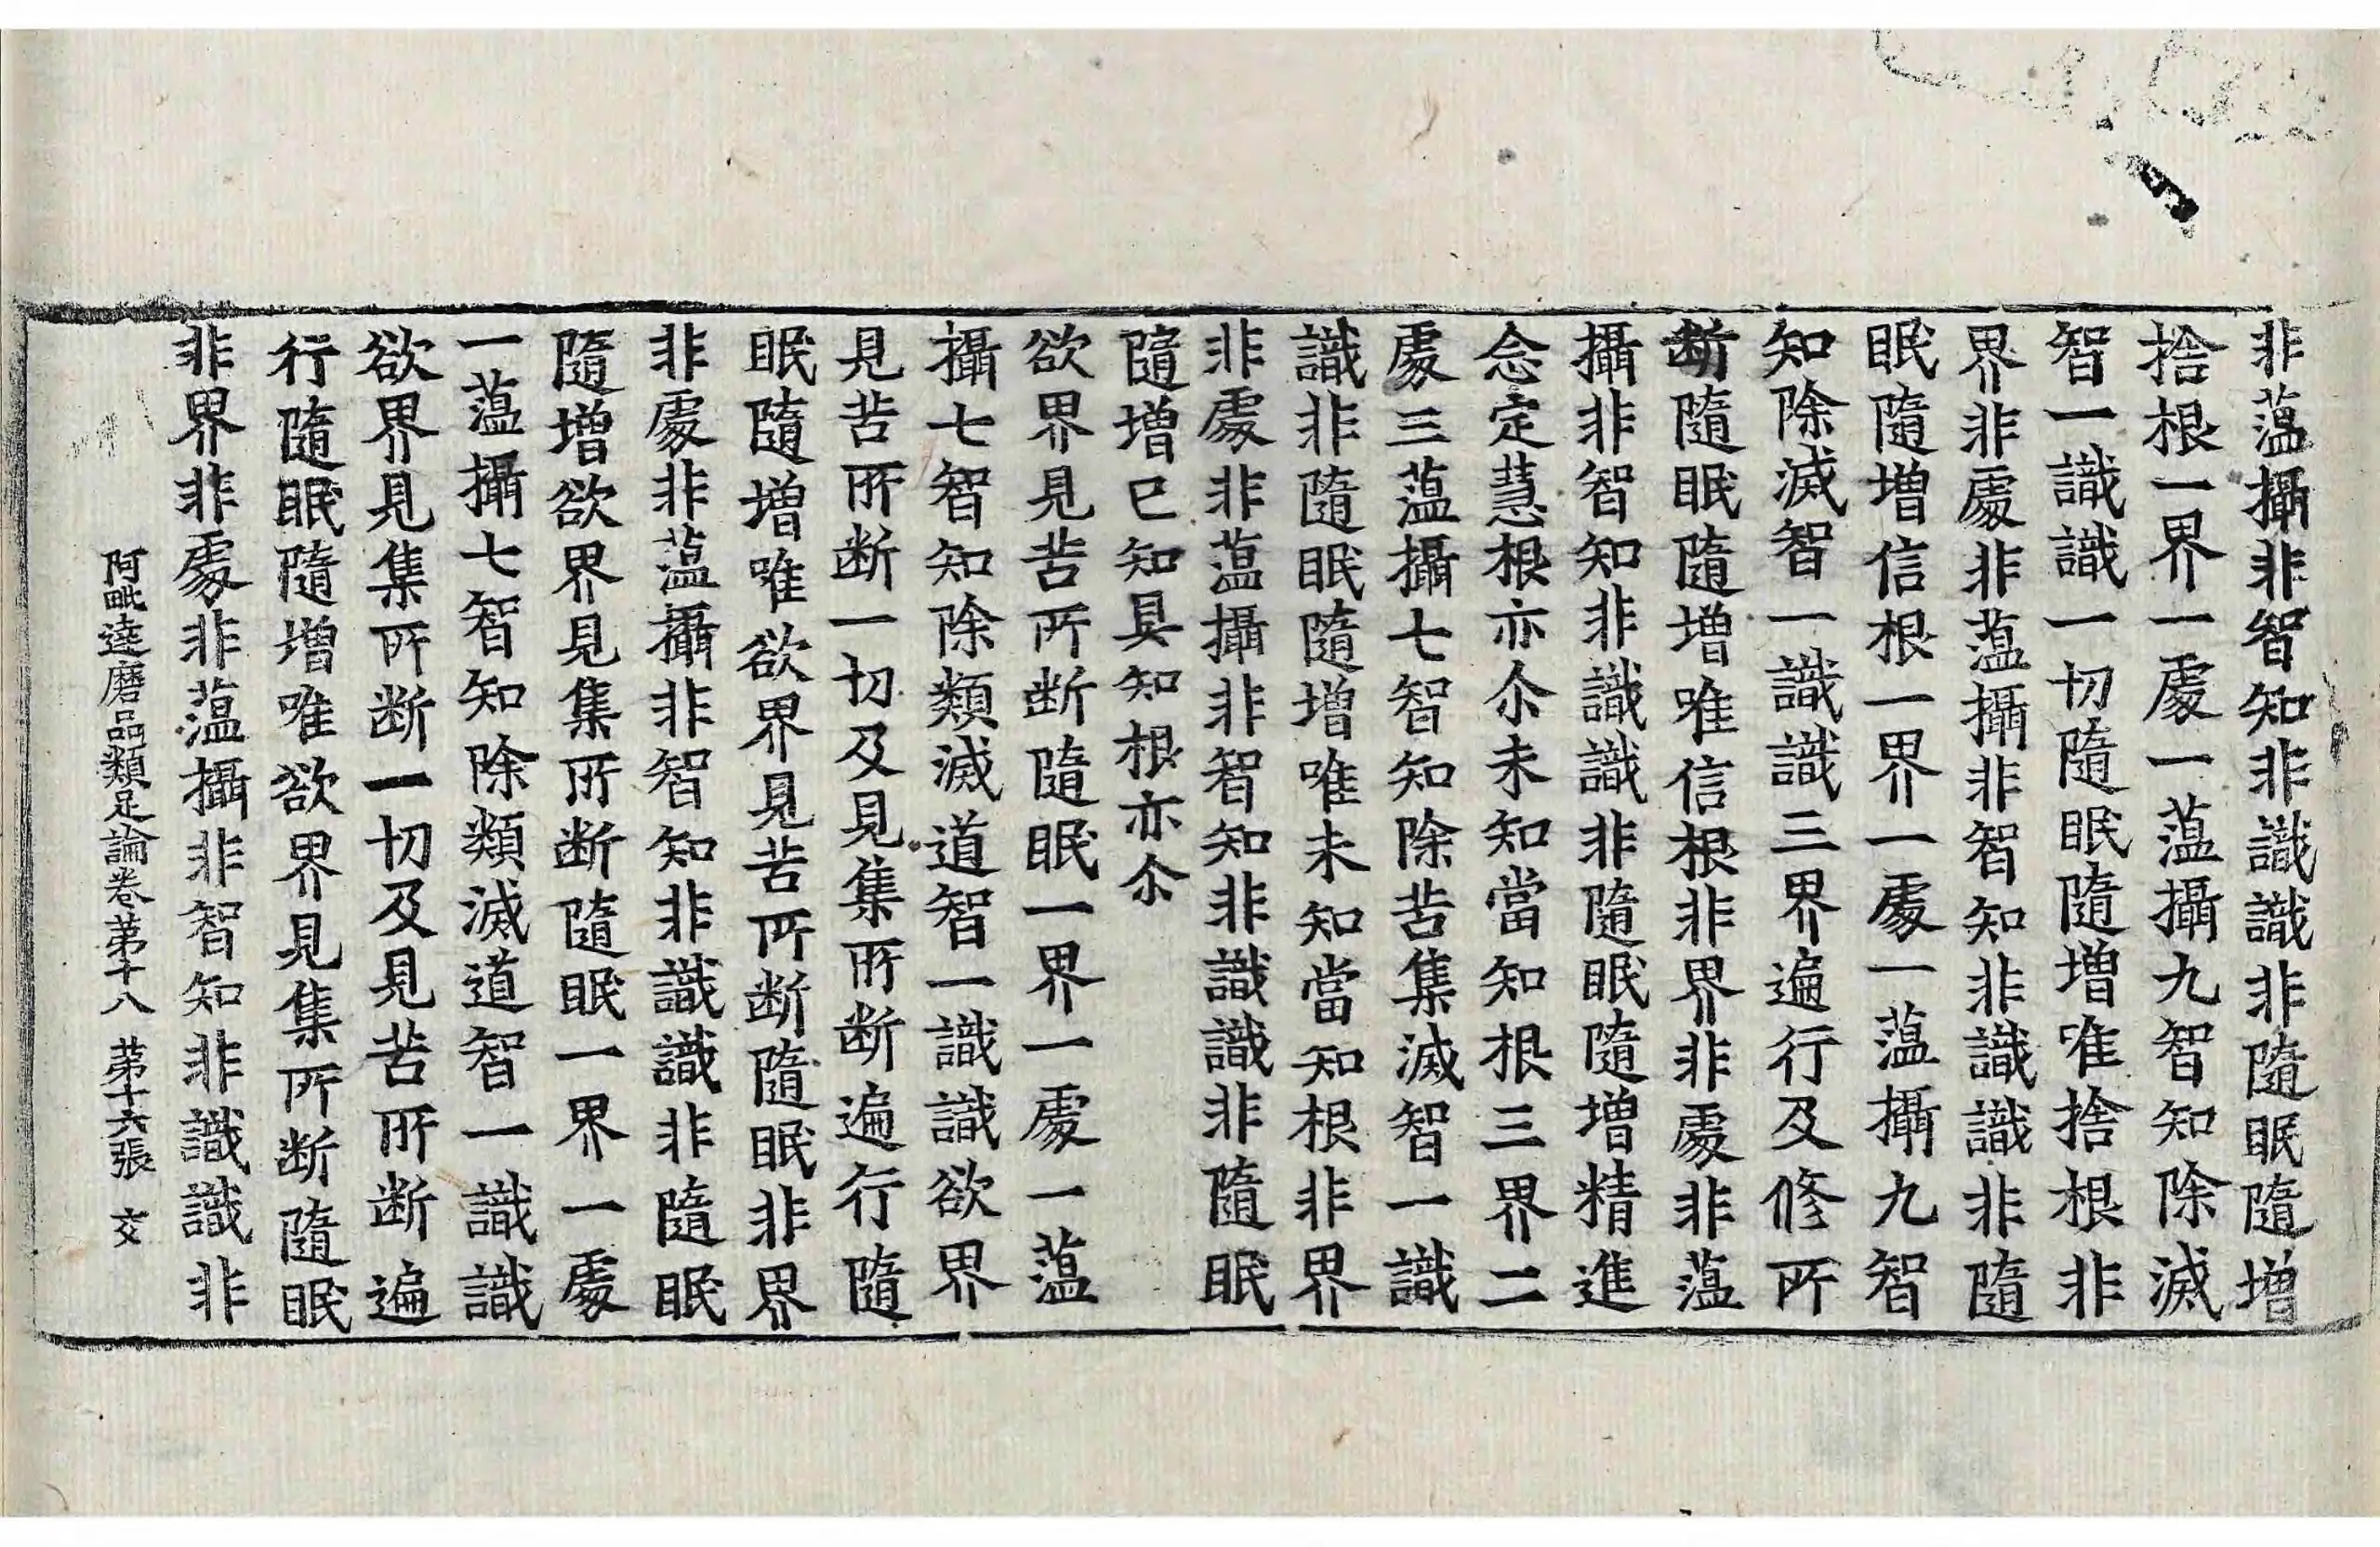 非蘊攝非智知非識識非隨眠隨增
捨根一界一處一蘊攝九智知除滅
智一識識一切隨眠隨增唯捨根非
界非處非蘊攝非智知非識識非隨
眠隨增信根一界一處一蘊攝九智
知除滅智一識識三界遍行及修所
断隨眠隨增唯信根非界非處非蘊
攝非智知非識識非隨眠隨增精進
念定慧根亦尒未知當知根三界二
處三蘊攝七智知除苦集滅智一識
識非隨眠隨增唯未知當知根非界
非處非蘊攝非智知非識識非隨眠
隨增已知具知根亦尒
欲界見苦所断隨眠一界一處一蘊
攝七智知除類滅道智一識識欲界
見苦所断一切及見集所断遍行隨
眠隨增唯欲界見苦所断隨眠非界
非處非蘊攝非智知非識識非隨眠
隨增欲界見集所断隨眠一界一處
一蘊攝七智知除類滅道智一識識
欲界見集所断一切及見苦所断遍
行隨眠隨增唯欲界見集所断隨眠
非界非處非蘊攝非智知非識識非
阿毗達磨品類足論卷苐十八 苐十六張 交